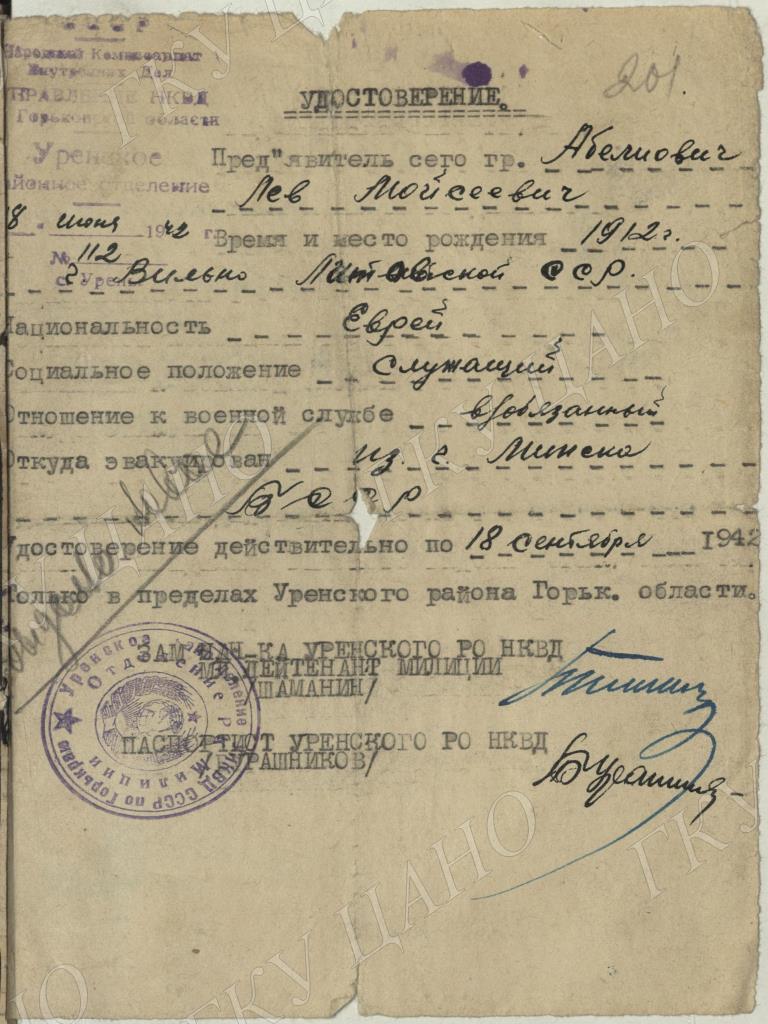 СССР
Народный Комиссариат
Внутренних Дел
УПРАВЛЕНИЕ НКВД
Горьковской области
Уренское
районное отделение
18 июня 1942 г.
№ 112
с. Урень
201.
УДОСТОВЕРЕНИЕ.
Пред"явитель сего гр. Абелиович
Лев Мойсеевич
Время и место рождения 1912 г.
г. Вильно Литовской ССР.
Национальность Еврей
Социальное положение служащий
Отношение к военной службе в/обязанный
Откуда эвакуирован из г. Минска
БССР
Удостоверение действительно по 18 сентября 1942
Только в пределах Уренского района Горьк. области.
ЗАМ НАЧ-КА УРЕНСКОГО РО НКВД
МЛ ЛЕЙТЕНАНТ МИЛИЦИИ
/ШАМАНИН/
ПАСПОРТИСТ УРЕНСКОГО РО НКВД
/БУРАШНИКОВ/
Уренское районное отделение НКВД СССР по Горькраю
Отделение РК Милиции
ГКУ ЦАНО